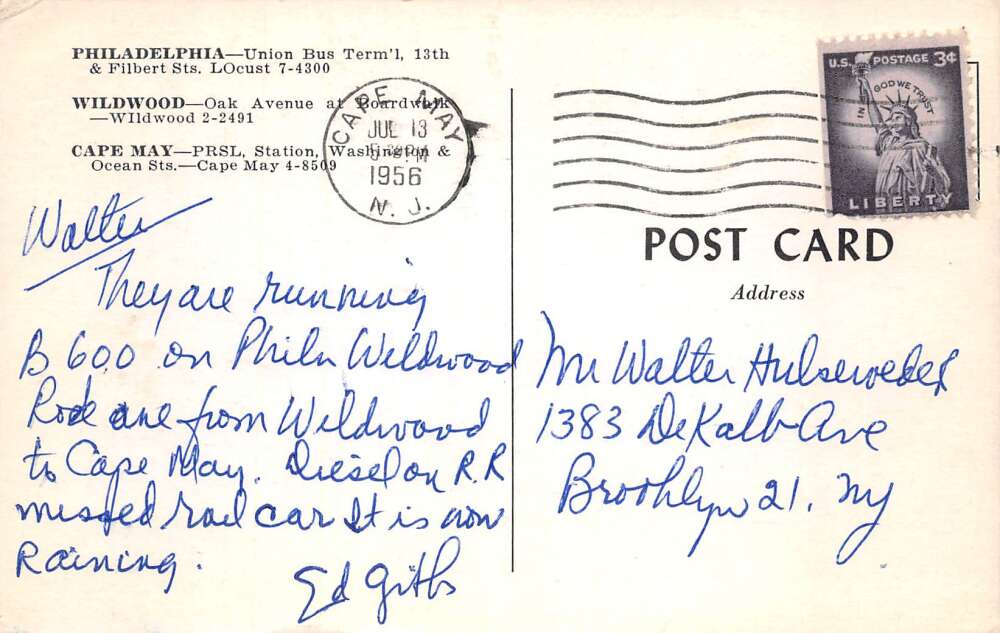 PHILADELPHIA—Union Bus Term'l, 13th
& Filbert Sts. LOcust 7-4300
WILDWOOD—Oak Avenue at Boardwalk
—WIldwood 2-2491
CAPE MAY—PRSL, Station, Washington &
Ocean Sts.—Cape May 4-8509
CAPE MAY
JUL 13
PM
1956
N. J.
U.S. POSTAGE 3¢
IN GOD WE TRUST
LIBERTY
POST CARD
Address
Walter
They are running
B 600 on Phila Wildwood
Rode one from Wildwood
to Cape May. Diesel on R.R
missed rail car It is now
Raining.
Ed Gibbs
Mr Walter Hulseweder
1383 DeKalb Ave
Brooklyn 21. NY